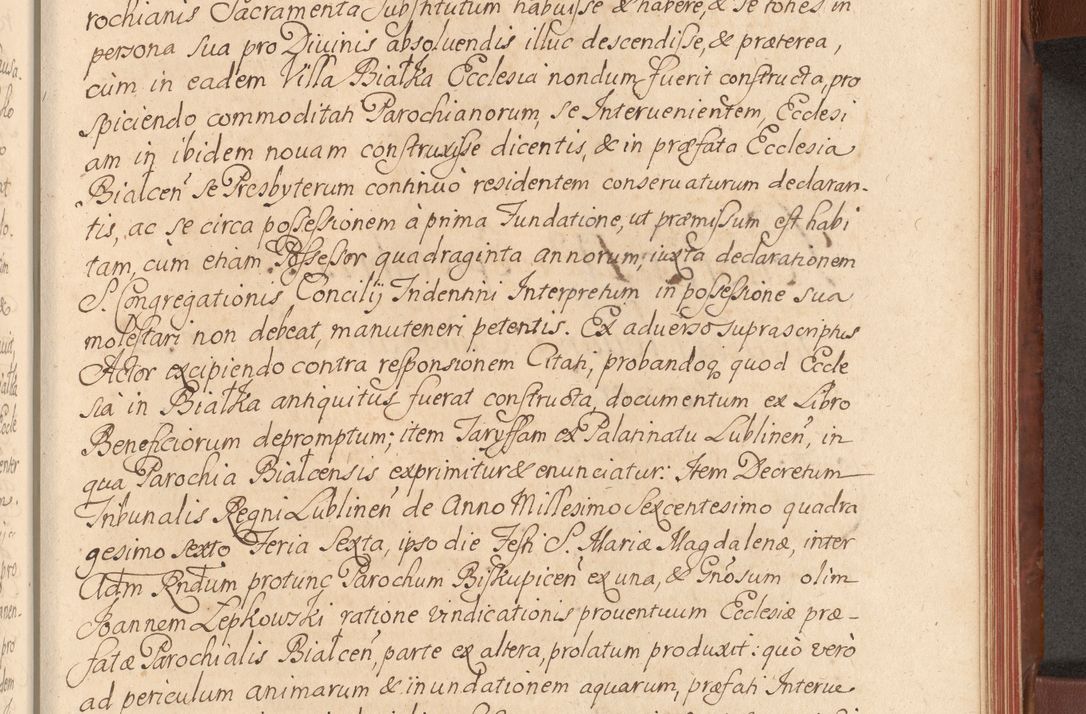 rochianis Sacramenta Substitutum habuisse & habere, & se toties in
persona sua pro Divinis absolvendis illuc descendisse, & præterea,
cùm in eadem Villa Białka Ecclesia nondum fuerit constructa, pro
spiciendo commoditati Parochianorum, se Intervenientem, Ecclesi
am in ibidem novam construxisse dicentis, & in præfata Ecclesia
Bialcen̄ se Presbyterum continuò residentem conservaturum declaran-
tis, ac se circa possessionem à prima Fundatione, ut præmissum est habi
tam, cùm etiam Possessor quadraginta annorum, iuxta declarationem
S. Congregationis Concilij Tridentini Interpretum in possessione sua
molestari non debeat, manuteneri petentis. Ex adverso suprascriptus
Actor excipiendo contra responsionem Citati, probandoq, quod Eccle
sia in Białka antiquitùs fuerat constructa, documentum ex Libro
Beneficiorum depromptum; item Taryffam ex Palatinatu Lublinen̄, in
qua Parochia Bialcensis exprimitur & enunciatur: Item Decretum
Tribunalis Regni Lublinen̄ de Anno Millesimo Sexcentesimo quadra
gesimo sexto Feria Sexta, ipso die Festi S. Mariæ Magdalenæ, inter
Adm Rndum protunc Parochum Biskupicen̄ ex una, & Gnosum olim
Joannem Lepkowski ratione vindicationis proventuum Ecclesiæ præ-
fatæ Parochialis Bialcen̄, parte ex altera, prolatum produxit: quò verò
ad periculum animarum & inundationem aquarum, præfati Interve